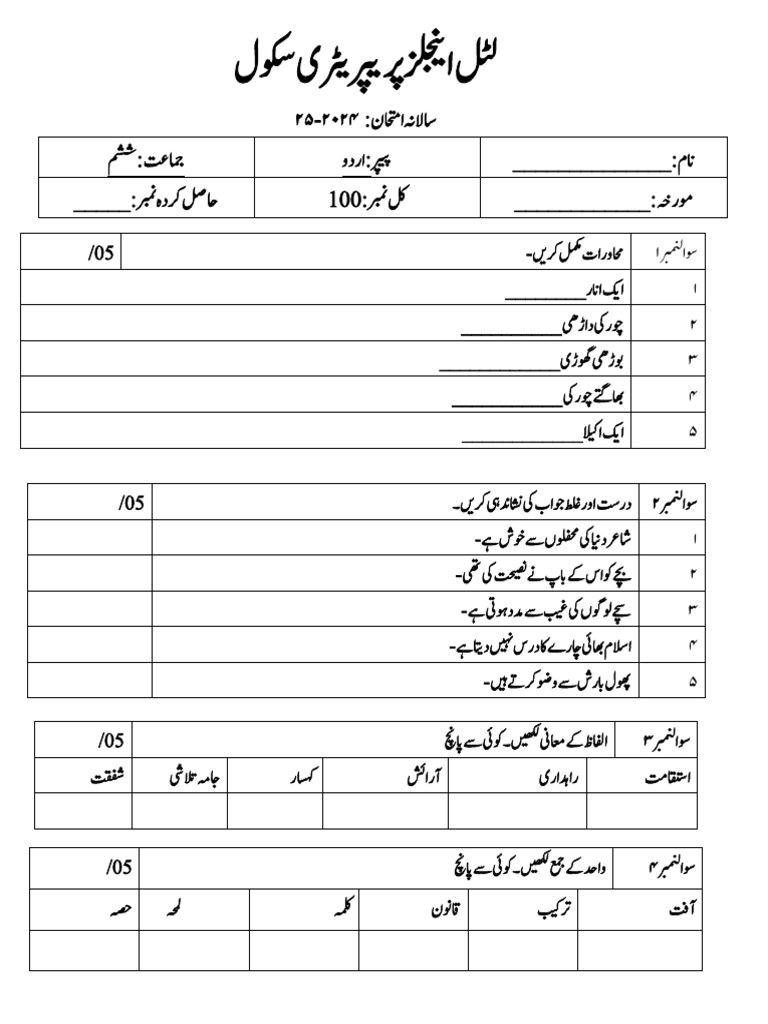 لٹل اینجلز پریپریٹری سکول
سالانہ امتحان: ۲۰۲۴-۲۵
نام: ________________ پیپر: اردو جماعت: ششم
مورخہ: ______________ کل نمبر: 100 حاصل کردہ نمبر: ______
سوالنمبر ۱ محاورات مکمل کریں- /05
۱ ایک انار ________
۲ چور کی داڑھی __________
۳ بوڑھی گھوڑی ____________
۴ بھاگتے چور کی ___________
۵ ایک اکیلا ____________
سوالنمبر ۲ درست اور غلط جواب کی نشاندہی کریں۔ /05
۱ شاعر دنیا کی محفلوں سے خوش ہے-
۲ بچے کو اس کے باپ نے نصیحت کی تھی-
۳ سچے لوگوں کی غیب سے مدد ہوتی ہے-
۴ اسلام بھائی چارے کا درس نہیں دیتا ہے-
۵ پھول بارش سے وضو کرتے ہیں-
سوالنمبر ۳ الفاظ کے معانی لکھیں۔ کوئی سے پانچ /05
استقامت راہداری آرائش کہسار جامہ تلاشی شفقت
سوالنمبر ۴ واحد کے جمع لکھیں۔ کوئی سے پانچ /05
آفت ترکیب قانون کلمہ لمحہ حصہ